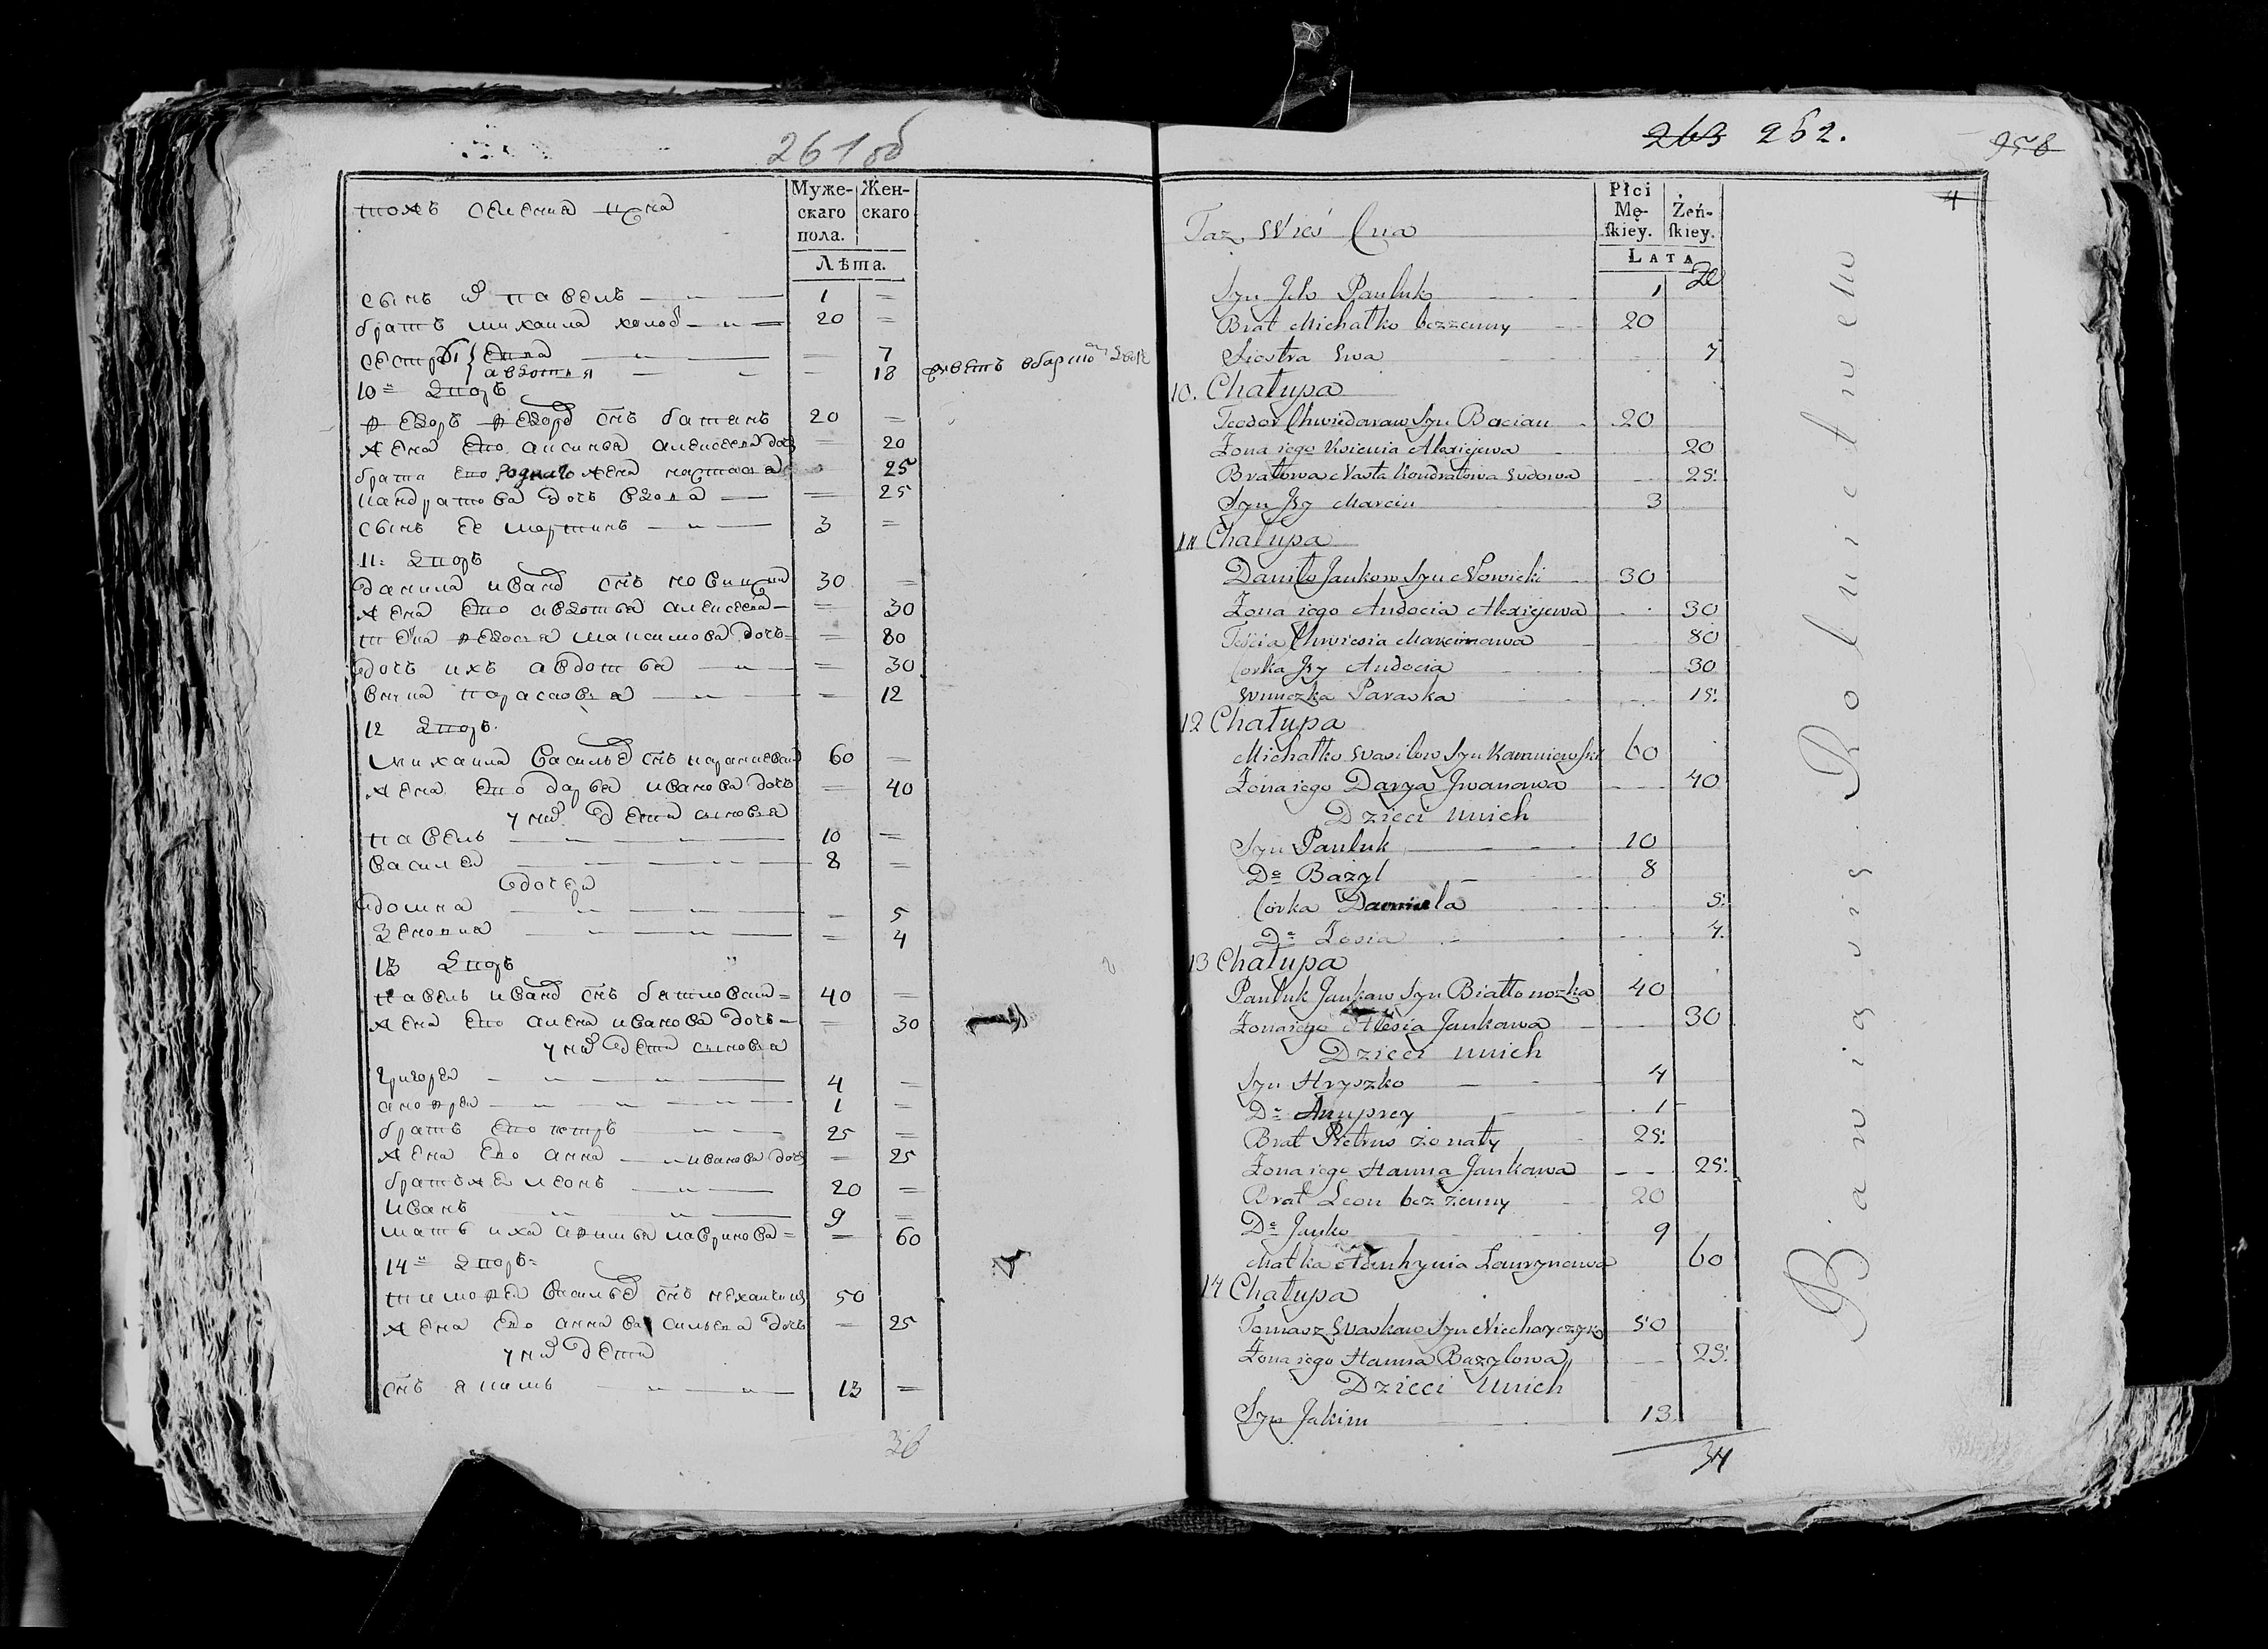 261 об
Муже-скаго пола.
Жен-скаго
Лѣта.
тожъ селения цна
сынъ и павелъ 1 =
братъ михаила холоб 20 =
сестры 7
авдотья 18
10 = двор
федоръ федор снъ батянъ 20 =
жена его аксинья алексеева доч = 20
брата его роднаго жена настасья 25
кандратова дочь вдова = 25
сынъ ее мартинъ 3 =
11: двор
данила иван снъ новицки 30 =
жена его авдотья алексеева = 30
теща федосья максимова дочь = 80
дочь ихъ авдотья = 30
внука парасковья = 12
12 двор.
михаила василье снъ 60 =
жена его дарья иванова дочь = 40
у них дети сыновья
павелъ 10 =
василей 8 =
дочери
домна = 5
зеновия = 4
13 двор
павелъ иван снъ 40 =
жена его алена иванова дочь = 30
у них дети сыновья
григорей 4 =
анофрей 1 =
братъ его петръ 25 =
жена его анна иванова доч = 25
братья леонъ 20 =
иванъ 9 =
мать их лавринова = 60
14 = двор
тимофей василье снъ 50
жена его анна васильева дочь = 25
у них дети
снъ якимъ 13 =
36
263 262.
958
4
Płci Mę-skiey.
Żeń-skiey.
Lata
Taż Wieś Cna
Syn Jch Pauluk 1
Brat Michałko bezżenny 20
Siostra Ewa 7
10. Chałupa
Teodor Chwiedaraw Syn Bocian 20
Żona jego Ksienia Alexiejewa 20
Bratowa Nasta Kondratowa Wdowa 25.
Syn Jey Marcin 3
11 Chałupa
Daniło Jankow Syn Nowicki 30
Żona jego Audocia Alexiejewa 30
Teścia Chwiesia Marcinowa 80
Corka Jey Audocia 30
Wnuczka Paraska 15.
12 Chałupa
Michałko Wasilow Syn Karaniewski 60
Żona jego Darya Jwanowa 40
Dzieci u nich
Syn Pauluk 10
De Bazyl 8
Corka 5.
De Zosia 4.
13 Chałupa
Pauluk Jankaw Syn Białłonozka 40
Żona jego Alesia Jankawa 30
Dzieci u nich
Syn Hryszko 4
De Anuprey 1
Brat Pietrus żonaty 25.
Żona jego Hanna Jankawa 25.
Brat Leon bezżenny 20
De Janko 9
Matka Lawrynowa 60
14 Chałupa
Tomasz Waskaw Syn 50
Żona jego Hanna Bazylowa 25.
Dzieci u nich
Syn Jakim 13
34
Bawią się Rolnictwem